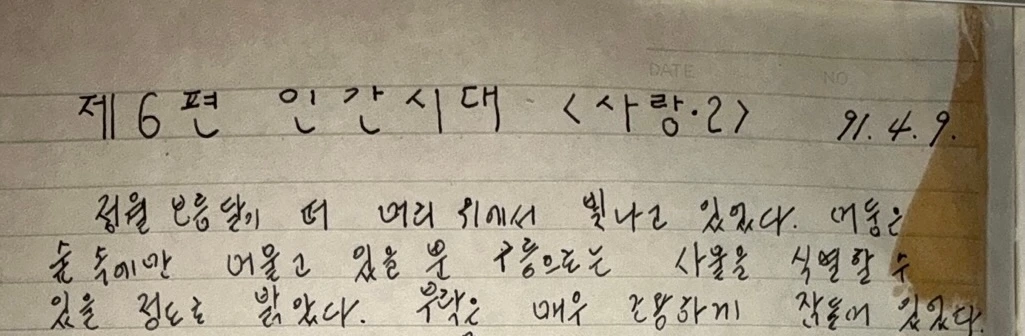 DATE NO
제6편 인간시대 <사랑·2> 91. 4. 9.
정월 보름달이 떠 머리 위에서 빛나고 있었다. 어둠은
숲 속에만 머물고 있을 뿐 구릉으로는 사물을 식별할 수
있을 정도로 밝았다. 부락은 매우 조용하게 잠들어 있었다.